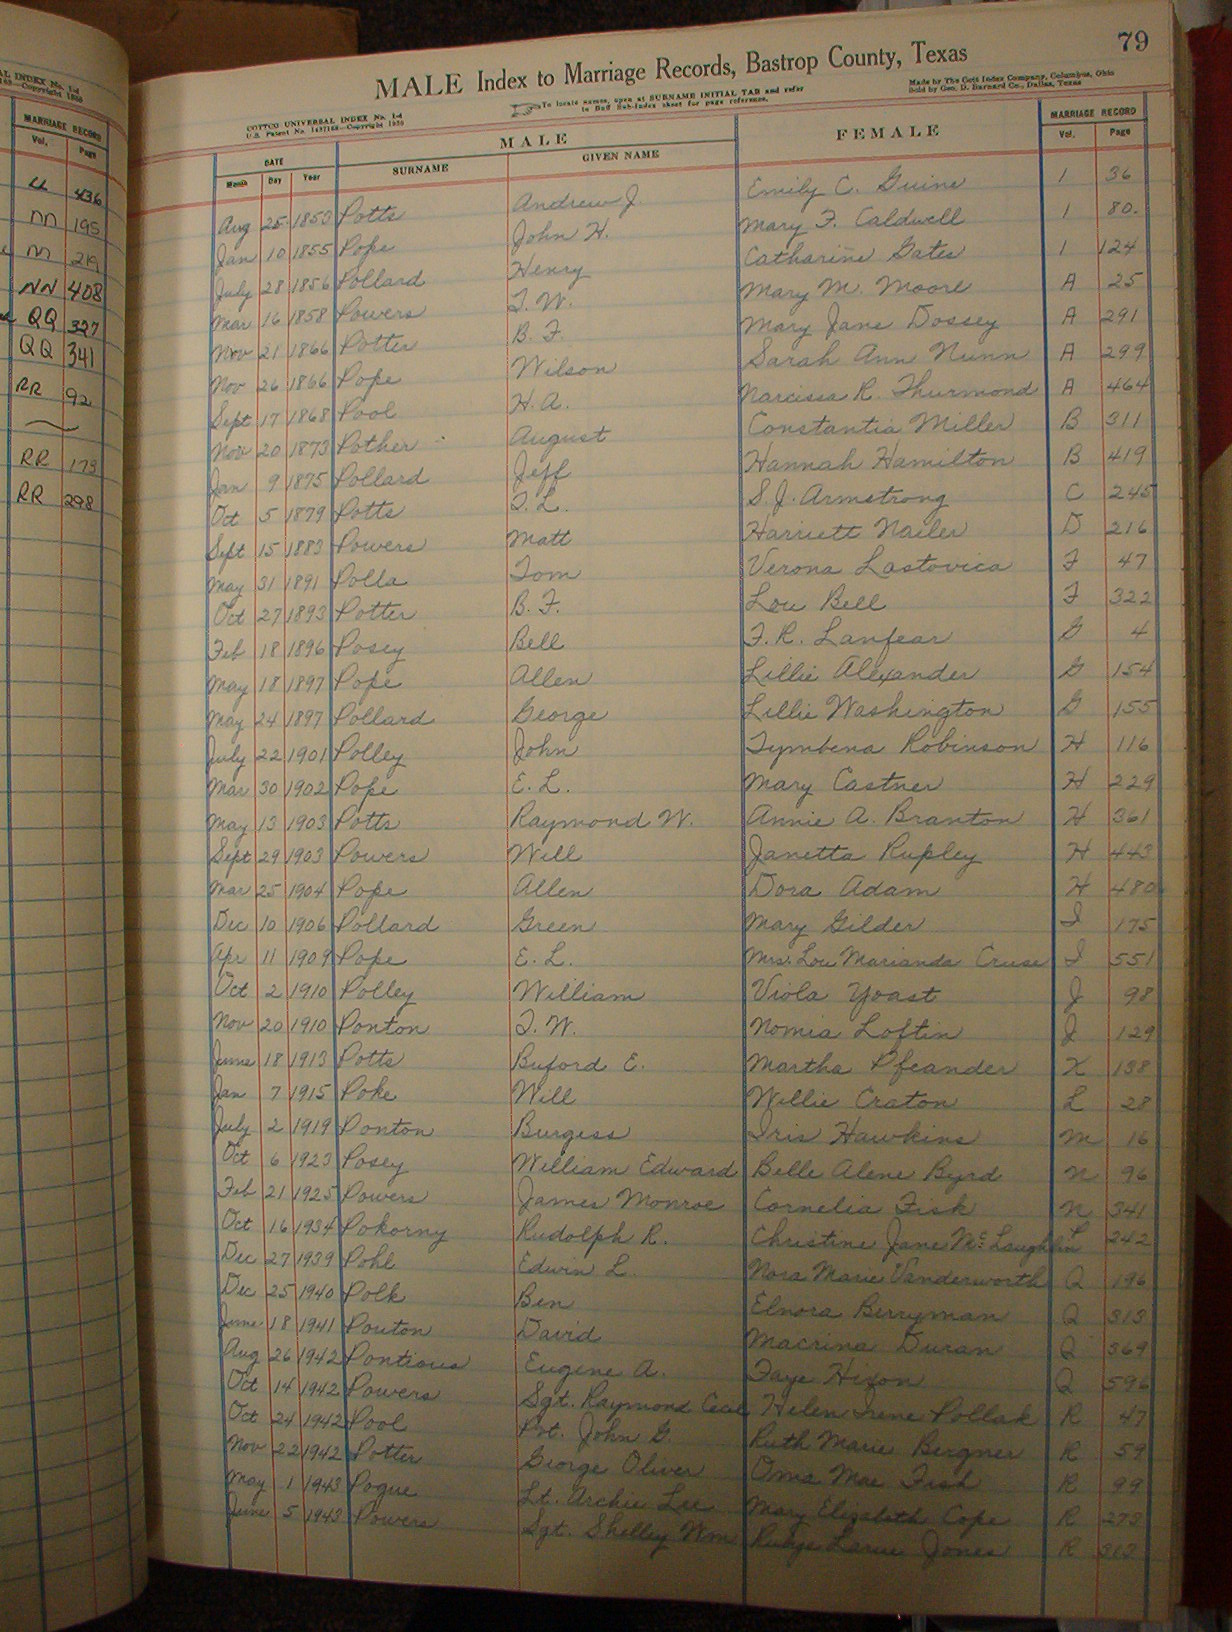 AL INDEX No. 1-d
MARRIAGE RECORD
Vol. Page
LL 436
M 195
M 219
NN 408
QQ 327
QQ 341
RR 92
RR 173
RR 298
79
MALE Index to Marriage Records, Bastrop County, Texas
COTTCO UNIVERSAL INDEX No. 1-d
To locate names, open at SURNAME INITIAL TAB and refer
to Buff Sub-Index sheet for page reference.
Made by The Cott Index Company, Columbus, Ohio
Sold by Geo. D. Barnard Co., Dallas, Texas
DATE MALE FEMALE MARRIAGE RECORD
Month Day Year SURNAME GIVEN NAME Vol. Page
Aug 25 1853 Potts Andrew J Emily C. Guine 1 36
Jan 10 1855 Pope John H. Mary F. Caldwell 1 80.
July 28 1856 Pollard Henry Catharine Gates 1 124
Mar 16 1858 Powers T. W. Mary M. Moore A 25
Nov 21 1866 Potter B. F. Mary Jane Dossey A 291
Nov 26 1866 Pope Wilson Sarah Ann Nunn A 299
Sept 17 1868 Pool H. A. Narcissa R. Thurmond A 464
Nov 20 1873 Pother August Constantia Miller B 311
Jan 9 1875 Pollard Jeff Hannah Hamilton B 419
Oct 5 1879 Potts T. L. S. J. Armstrong C 245
Sept 15 1883 Powers Matt Harriett Nailer D 216
May 31 1891 Polla Tom Verona Lastovica F 47
Oct 27 1893 Potter B. F. Lou Bell F 322
Feb 18 1896 Posey Bell F. R. Lanfear G 4
May 18 1897 Pope Allen Lillie Alexander G 154
May 24 1897 Pollard George Lillie Washington G 155
July 22 1901 Polley John Tymbena Robinson H 116
Mar 30 1902 Pope E. L. Mary Castner H 229
May 13 1903 Potts Raymond W. Annie A. Branton H 361
Sept 29 1903 Powers Will Janetta Rupley H 443
Mar 25 1904 Pope Allen Dora Adam H 480
Dec 10 1906 Pollard Green Mary Gilder I 175
Apr 11 1909 Pope E. L. Mrs. Lou Marianda Cruse I 551
Oct 2 1910 Polley William Viola Yoast J 98
Nov 20 1910 Ponton T. W. Nomia Loftin J 129
June 18 1913 Potts Buford E. Martha Pfeander K 138
Jan 7 1915 Poke Will Willie Craton L 28
July 2 1919 Ponton Burgess Iris Hawkins M 16
Oct 6 1923 Posey William Edward Belle Alene Byrd N 96
Feb 21 1925 Powers James Monroe Cornelia Fisk N 341
Oct 16 1934 Pokorny Rudolph R. Christine Jane McLaughlin 242
Dec 27 1939 Pohl Edwin L. Nora Marie Vanderworth Q 196
Dec 25 1940 Polk Ben Elnora Berryman Q 313
June 18 1941 Pouton David Macrina Duran Q 369
Aug 26 1942 Pontious Eugene A. Faye Hixon Q 596
Oct 14 1942 Powers Sgt. Raymond Cecil Helen Irene Pollak R 47
Oct 24 1942 Pool Pvt. John G. Ruth Marie Bergner R 59
Nov 22 1942 Potter George Oliver Oma Mae Fish R 99
May 1 1943 Pogue Lt. Archie Lee Mary Elizabeth Cope R 273
June 5 1943 Powers Sgt. Shelley Wm Rubye Larue Jones R 313